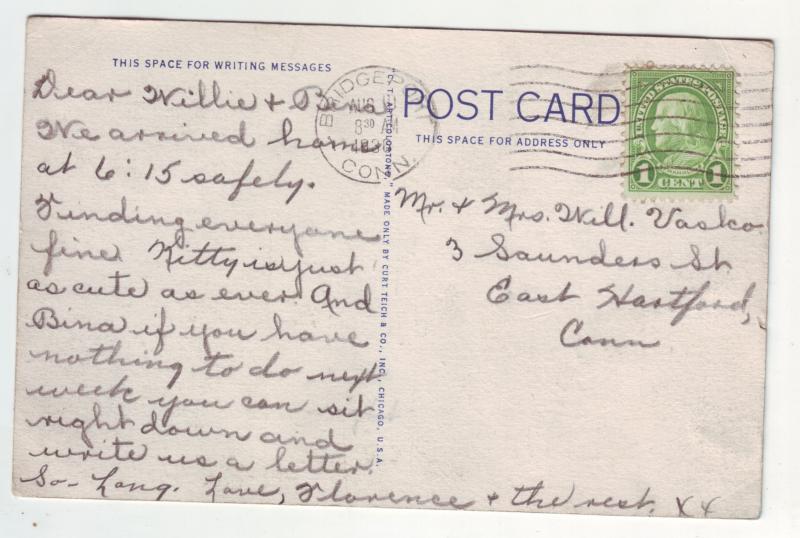 THIS SPACE FOR WRITING MESSAGES
Dear Willie & Bina
We arrived home
at 6:15 safely.
Finding everyone
fine. Kitty is just
as cute as ever. And
Bina if you have
nothing to do next
week you can sit
right down and
write us a letter.
So-Long. Love, Florence & the rest. XX
"C.T. ART-COLORTONE" MADE ONLY BY CURT TEICH & CO., INC., CHICAGO, U.S.A.
AUG
8 30 AM
CONN.
POST CARD
THIS SPACE FOR ADDRESS ONLY
UNITED STATES POSTAGE
1 CENT 1
Mr. & Mrs. Will. Vasko
3 Saunders St
East Hartford,
Conn